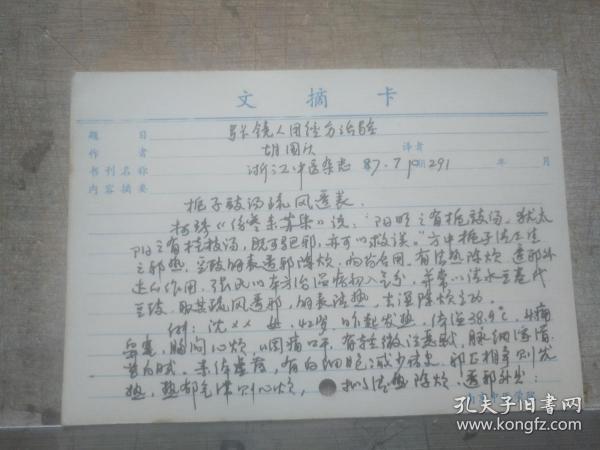 文摘卡
题目 张镜人用经方治验
作者 胡国庆 译者
书刊名称 浙江中医杂志 87.7 期 P291 年 月
内容摘要
栀子豉汤疏风透表
柯琴《伤寒来苏集》说:“阳明之有栀豉汤,犹太
阳之有桂枝汤,既可驱邪,亦可以救误。”方中栀子清上焦
之邪热,豆豉解表透邪除烦,两药合用,有清热除烦、透邪外
达的作用。张氏以本方治温病初入气分,并常以清水豆卷代
豆豉,取其疏风透邪,解表清热,去湿除烦之功。
例:沈×× 女,42岁,昨起发热,体温38.9℃,
鼻塞,胸闷心烦,咽痛口干,有轻微汗意,脉细
苔白腻。素体虚弱,有白细胞减少病史,邪正相争则发
热,热郁气滞则心烦,拟清热除烦,透邪外出:
孔夫子旧书网
www.kongfz.com